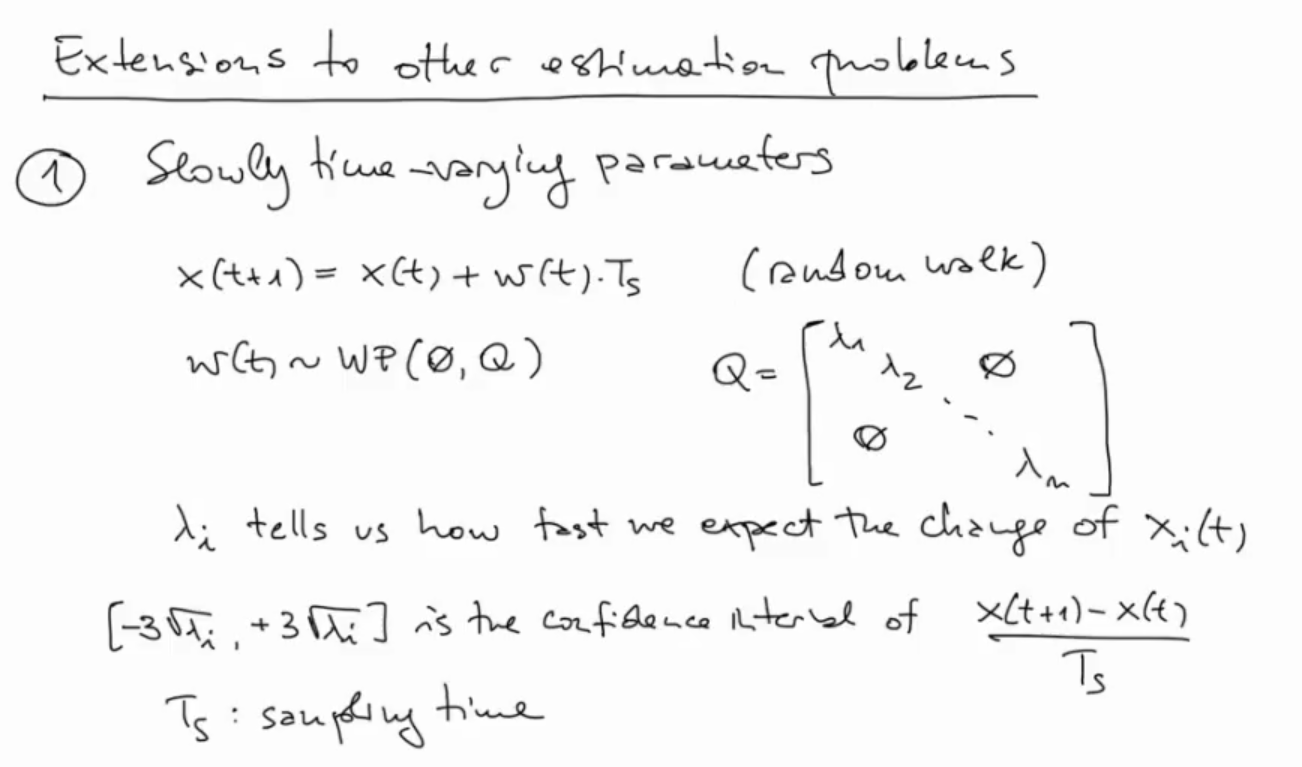 Extensions to other estimation problems
① Slowly time-varying parameters
x(t+1) = x(t) + w(t)·Ts (random walk)
w(t) ~ WP(Ø, Q) Q = [λ1 λ2 Ø Ø ⋱ λn]
λi tells us how fast we expect the change of xi(t)
[-3√λi, +3√λi] is the confidence interval of (x(t+1) - x(t)) / Ts
Ts : sampling time